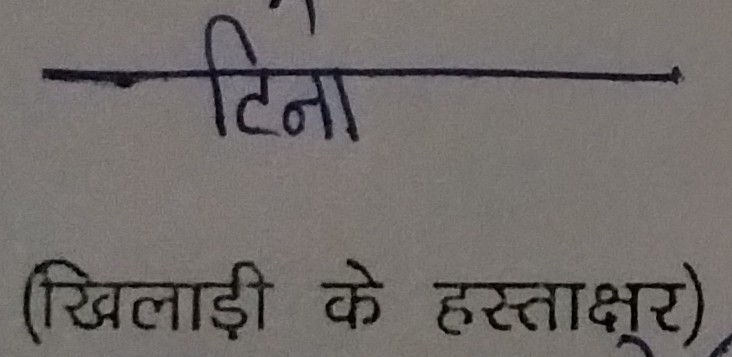 टिना
(खिलाड़ी के हस्ताक्षर)